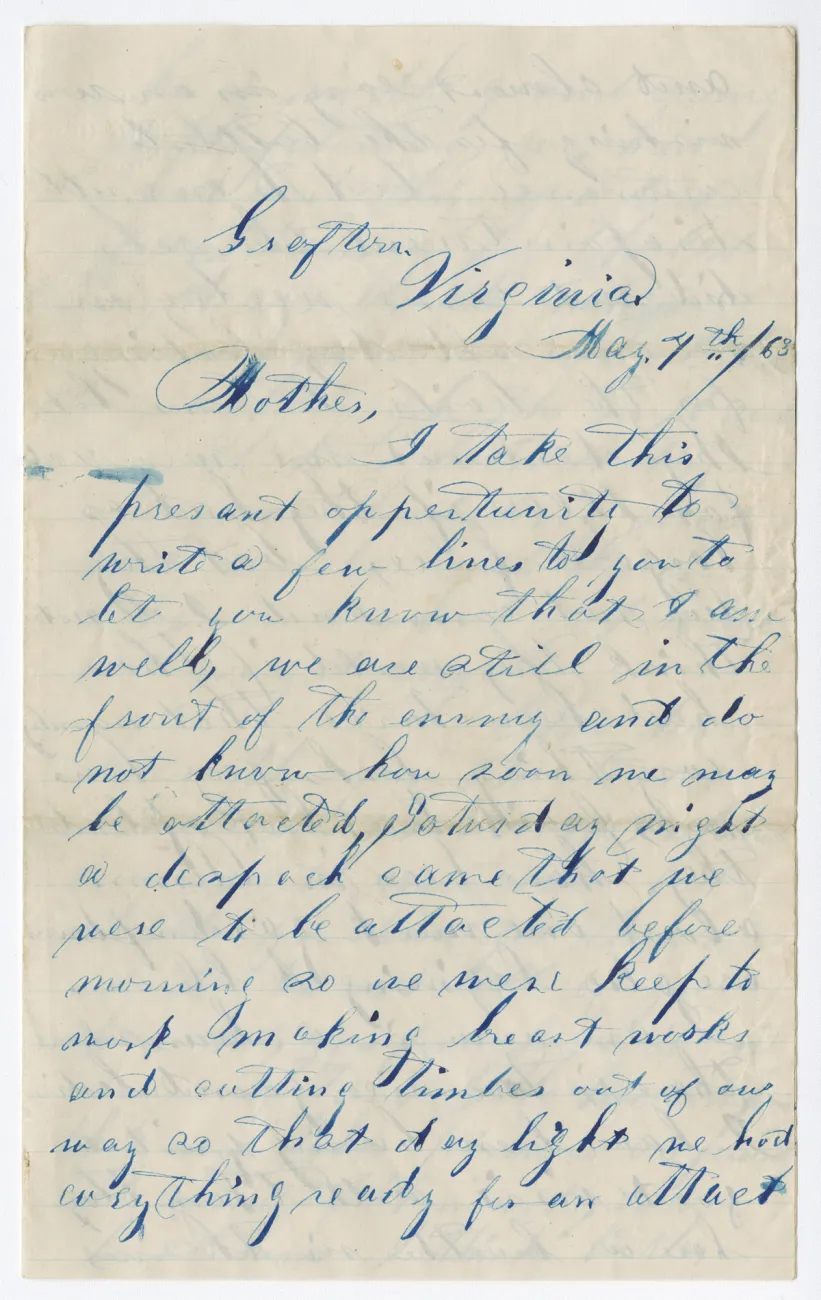 Grafton.
Virginia.
May. 7th/63
Mother,
I take this
presant oppertunity to
write a few lines to you to
let you know that I am
well, we are still in the
front of the enemy and do
not know how soon we may
be attacted, Saturday night
a despach came that we
were to be attacted before
morning so we were keep to
work making breast works
and cutting timber out of our
way so that day light we had
everything ready for an attact